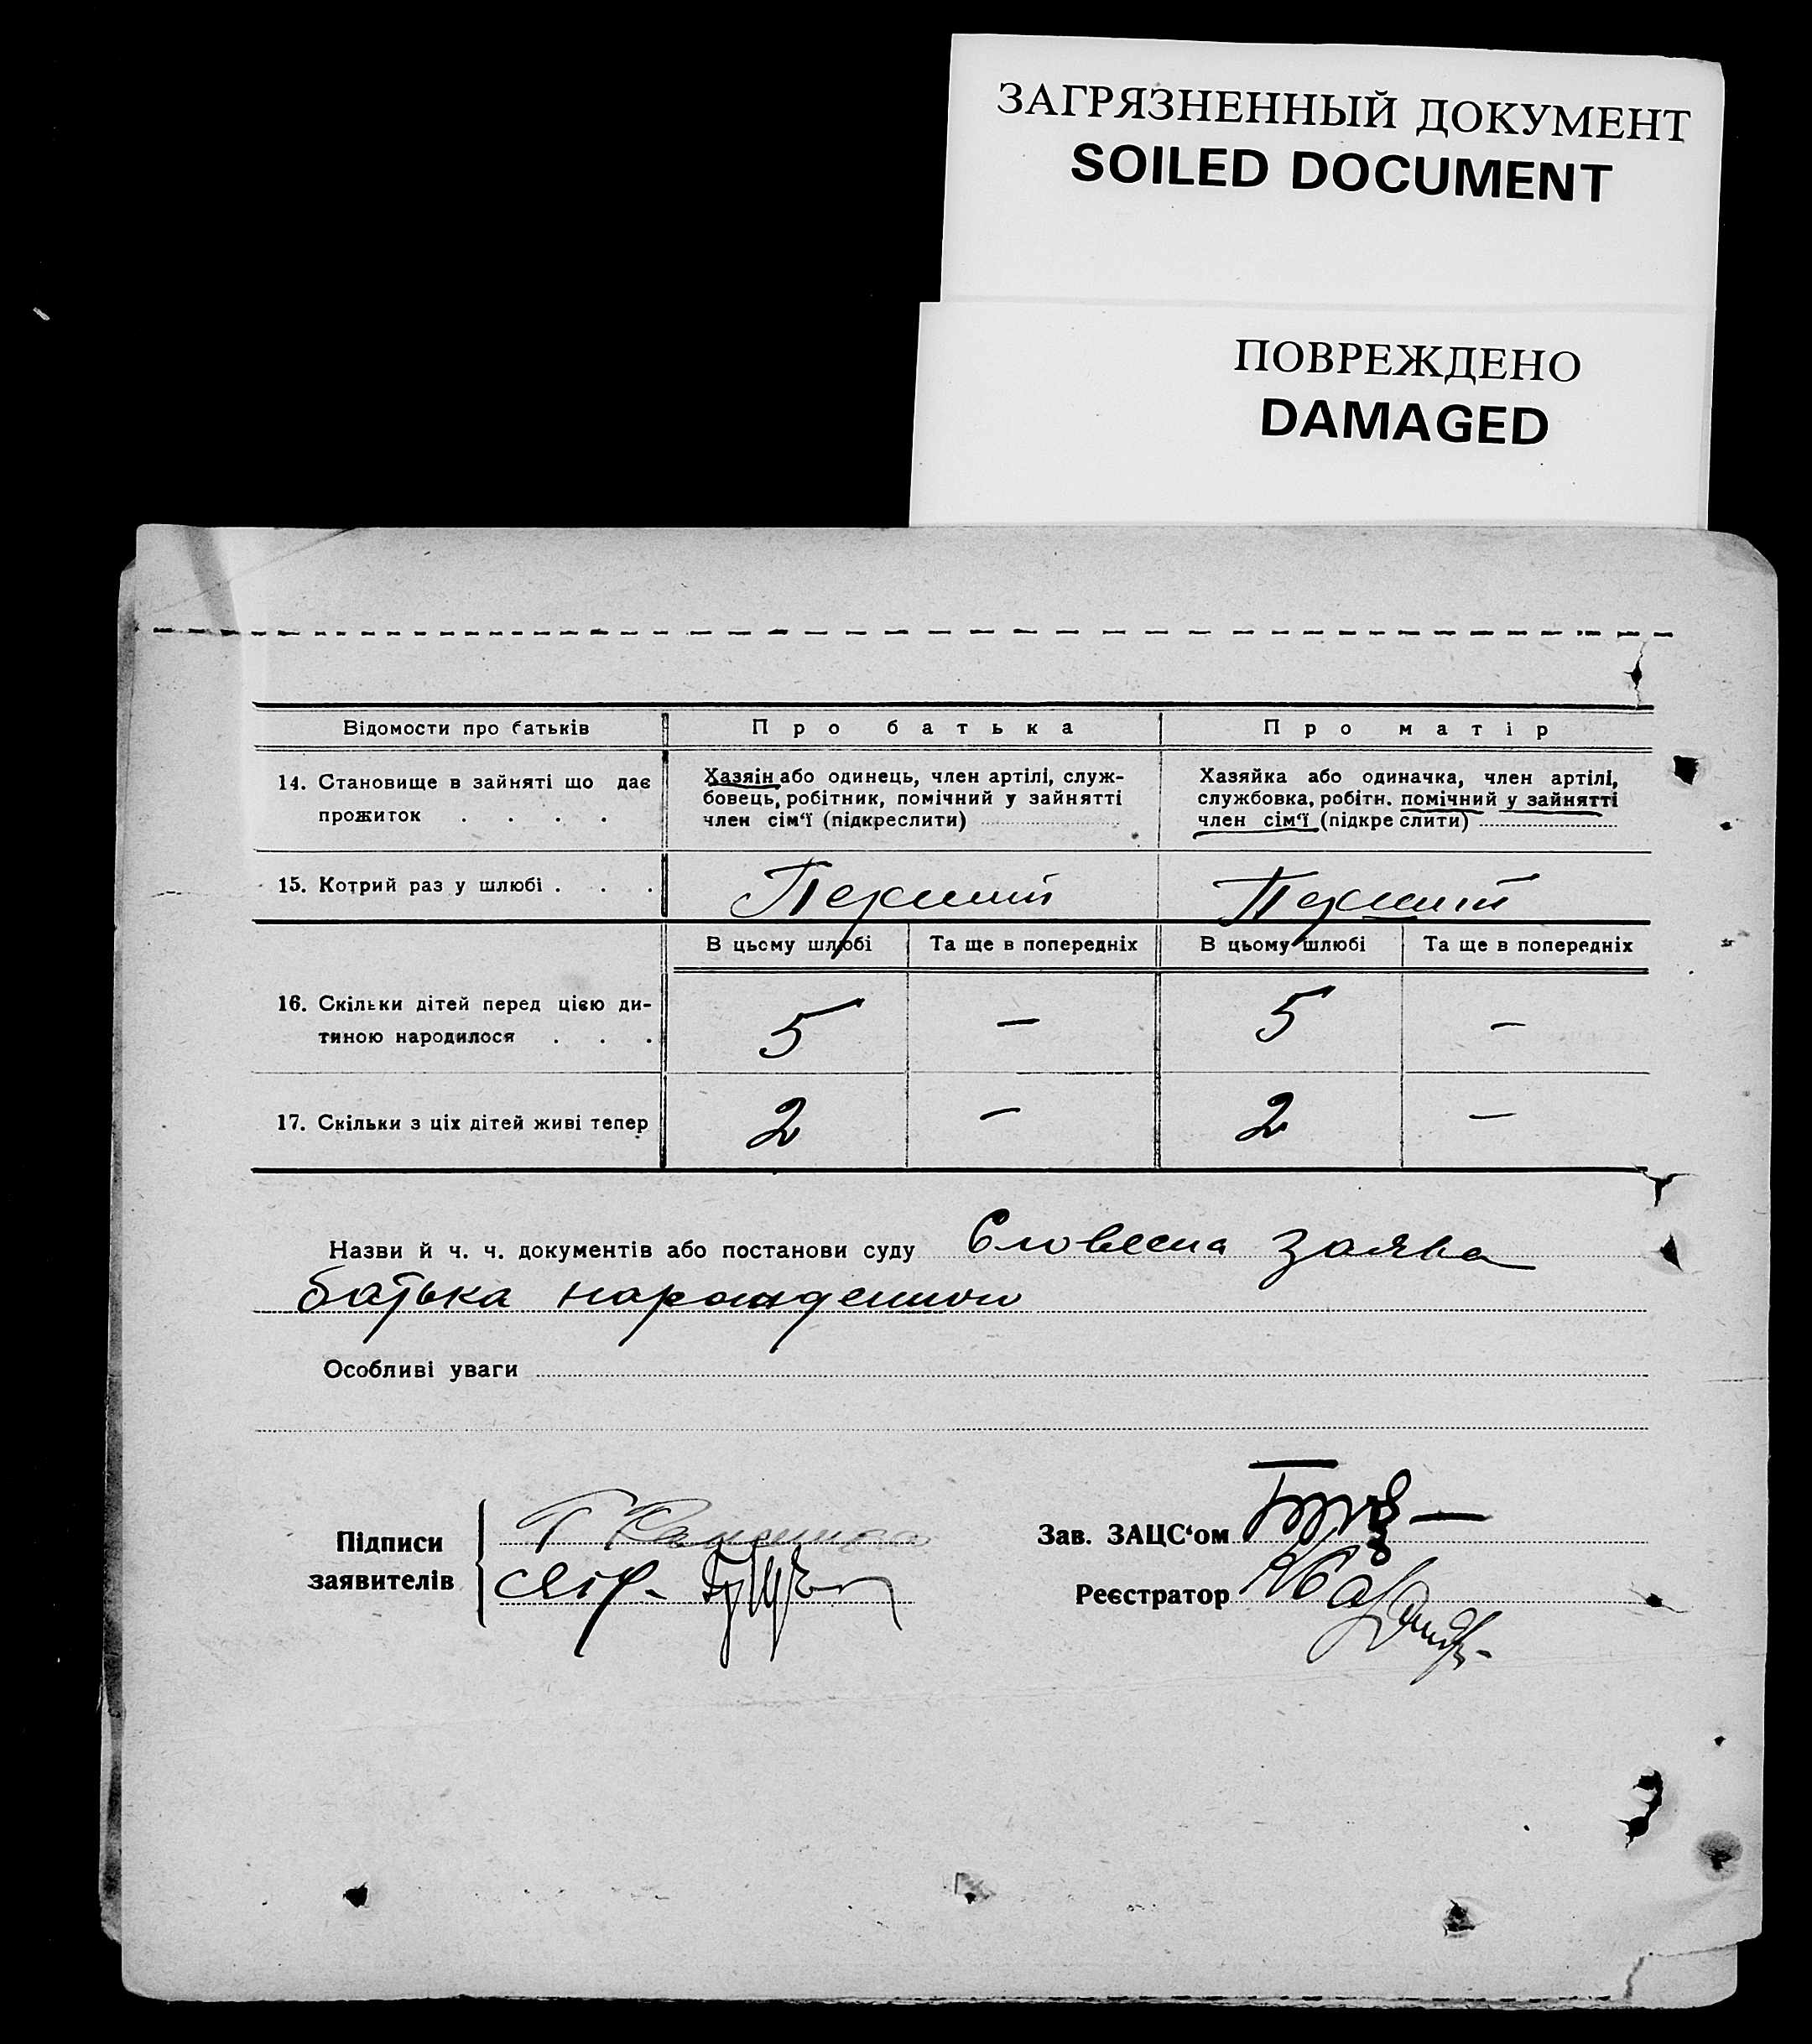 ЗАГРЯЗНЕННЫЙ ДОКУМЕНТ
SOILED DOCUMENT
ПОВРЕЖДЕНО
DAMAGED
Відомости про батьків
Про батька
Про матір
14. Становище в зайняті що дає
прожиток . . . .
Хазяін або одинець, член артілі, служ-
бовець, робітник, помічний у зайнятті
член сім‘ї (підкреслити)
Хазяйка або одиначка, член артілі,
службовка, робітн. помічний у зайнятті
член сім‘ї (підкреслити)
15. Котрий раз у шлюбі . . .
Перший
Перший
В цьому шлюбі
Та ще в попередніх
В цьому шлюбі
Та ще в попередніх
16. Скільки дітей перед цією ди-
тиною народилося . . .
5
—
5
—
17. Скільки з ціх дітей живі тепер
2
—
2
—
Назви й ч. ч. документів або постанови суду Словесна заява
батька
Особливі уваги
Підписи
заявителів
Зав. ЗАЦС‘ом
Реєстратор